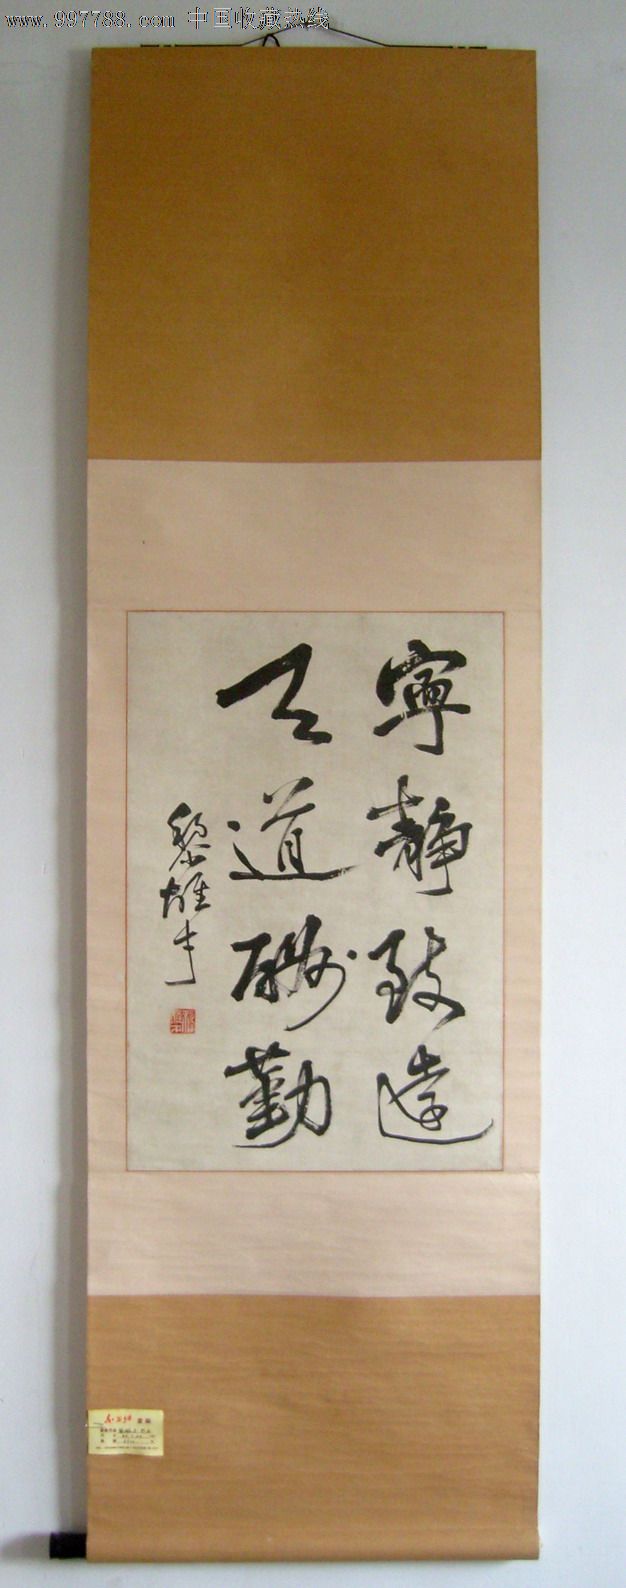 www.997788.com 中国收藏热线
寧靜致遠
天道酬勤
黎雄才